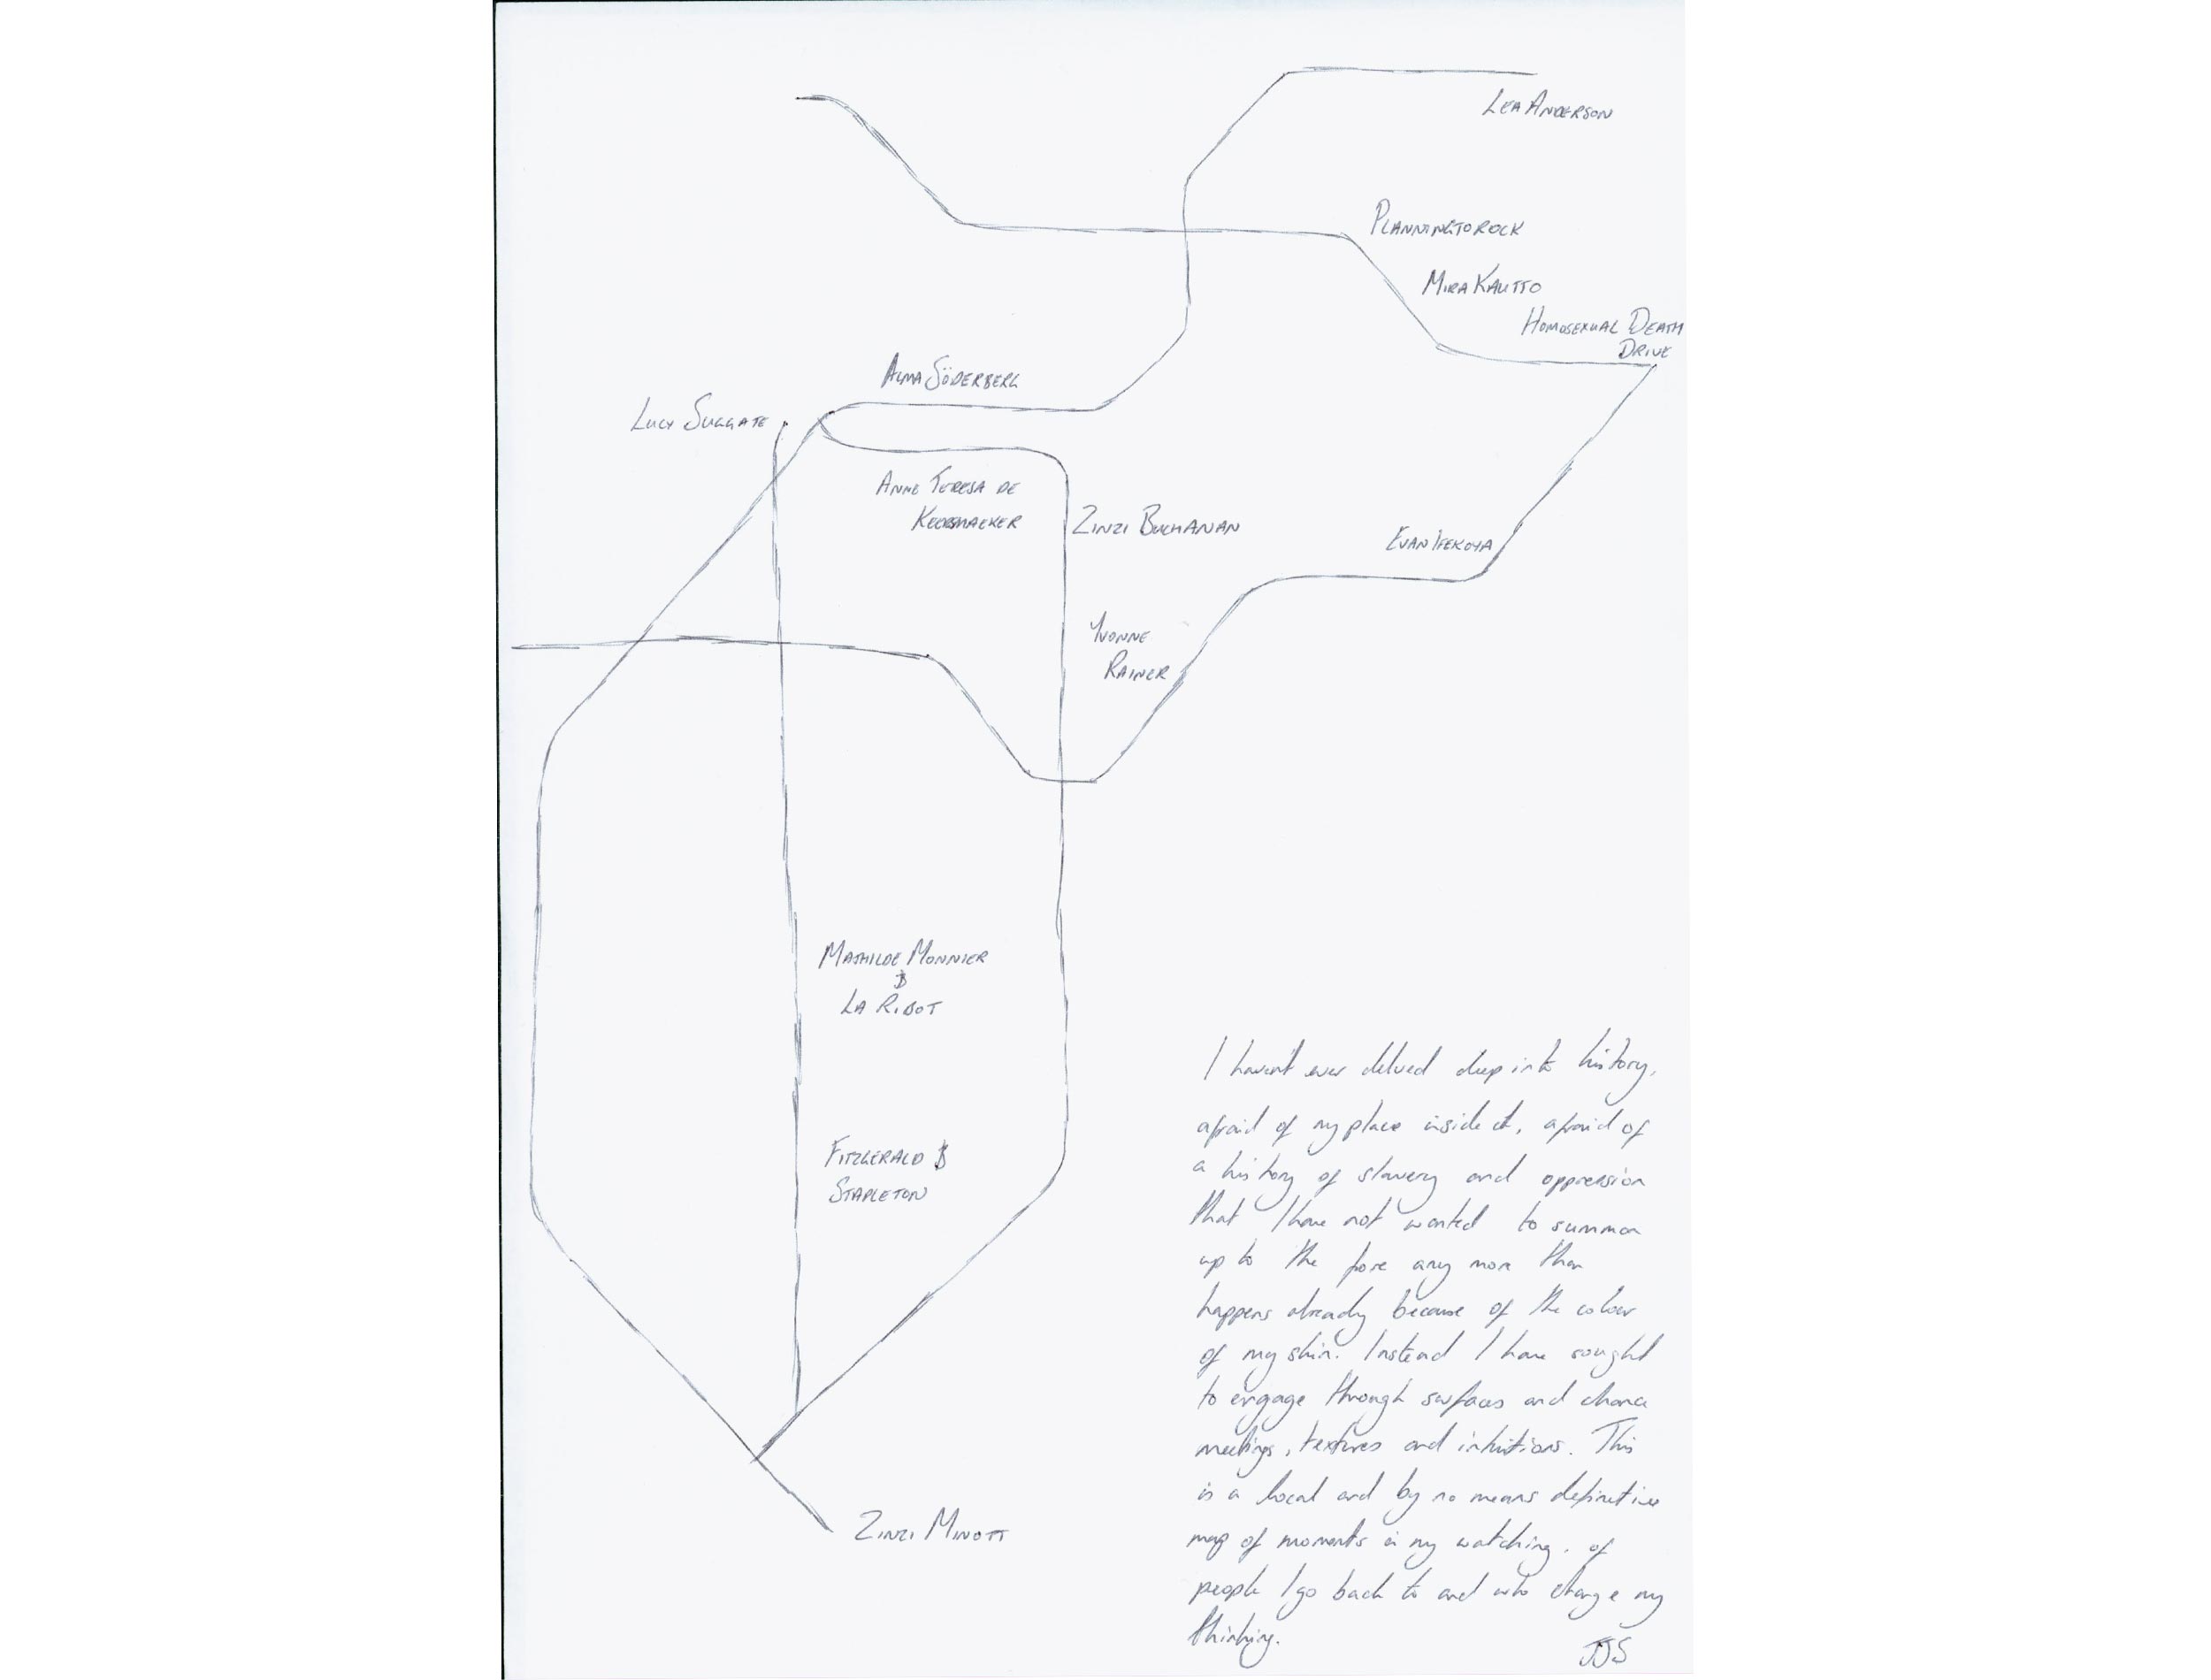 LEA ANDERSON
PLANNINGTOROCK
MIRA KAUTTO
HOMOSEXUAL DEATH
DRIVE
ALMA SÖDERBERG
LUCY SUGGATE
ANNE TERESA DE
KEERSMAEKER
ZINZI BUCHANAN
EVAN IFEKOYA
YVONNE
RAINER
MATHILDE MONNIER
&
LA RIBOT
FITZGERALD &
STAPLETON
ZINZI MINOTT
I haven't ever delved deep into history,
afraid of my place inside it, afraid of
a history of slavery and oppression
that I have not wanted to summon
up to the fore any more than
happens already because of the colour
of my skin. Instead I have sought
to engage through surfaces and chance
meetings, textures and intuitions. This
is a local and by no means definitive
map of moments in my watching, of
people I go back to and who change my
thinking.
JJS